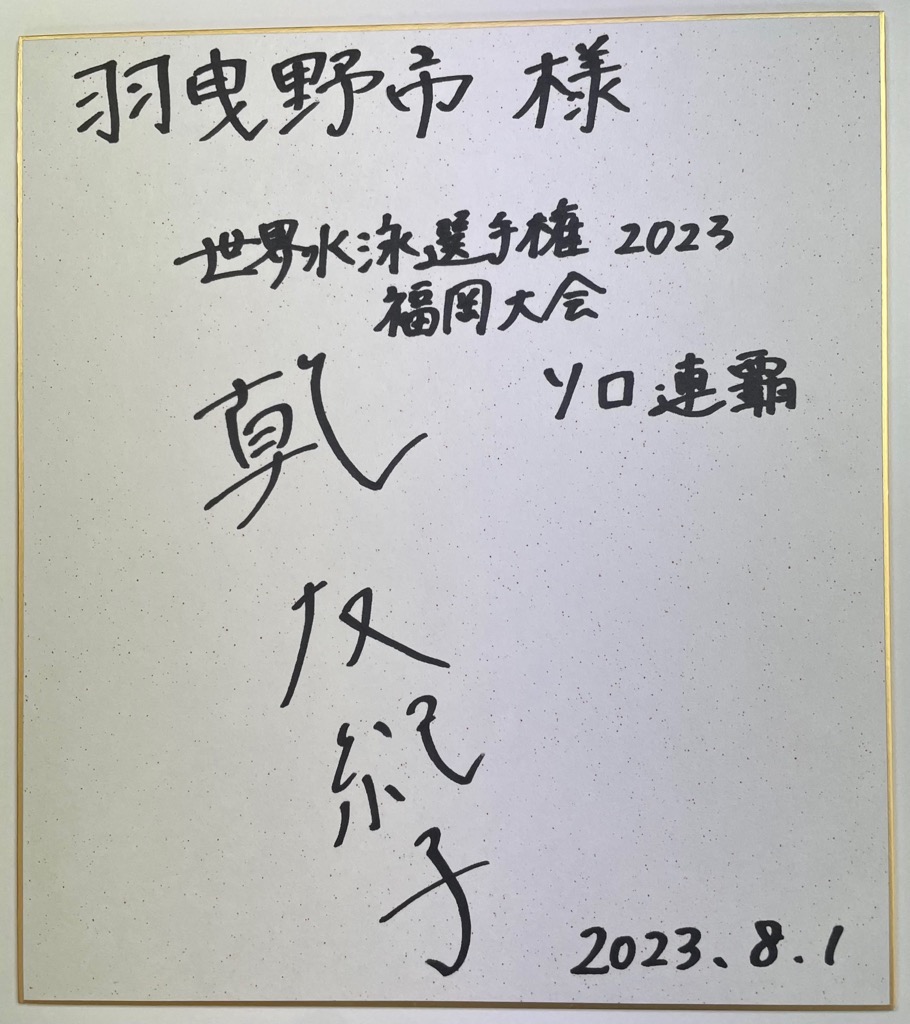 羽曳野市 様
世界水泳選手権 2023
福岡大会
ソロ連覇
乾
友紀子
2023.8.1